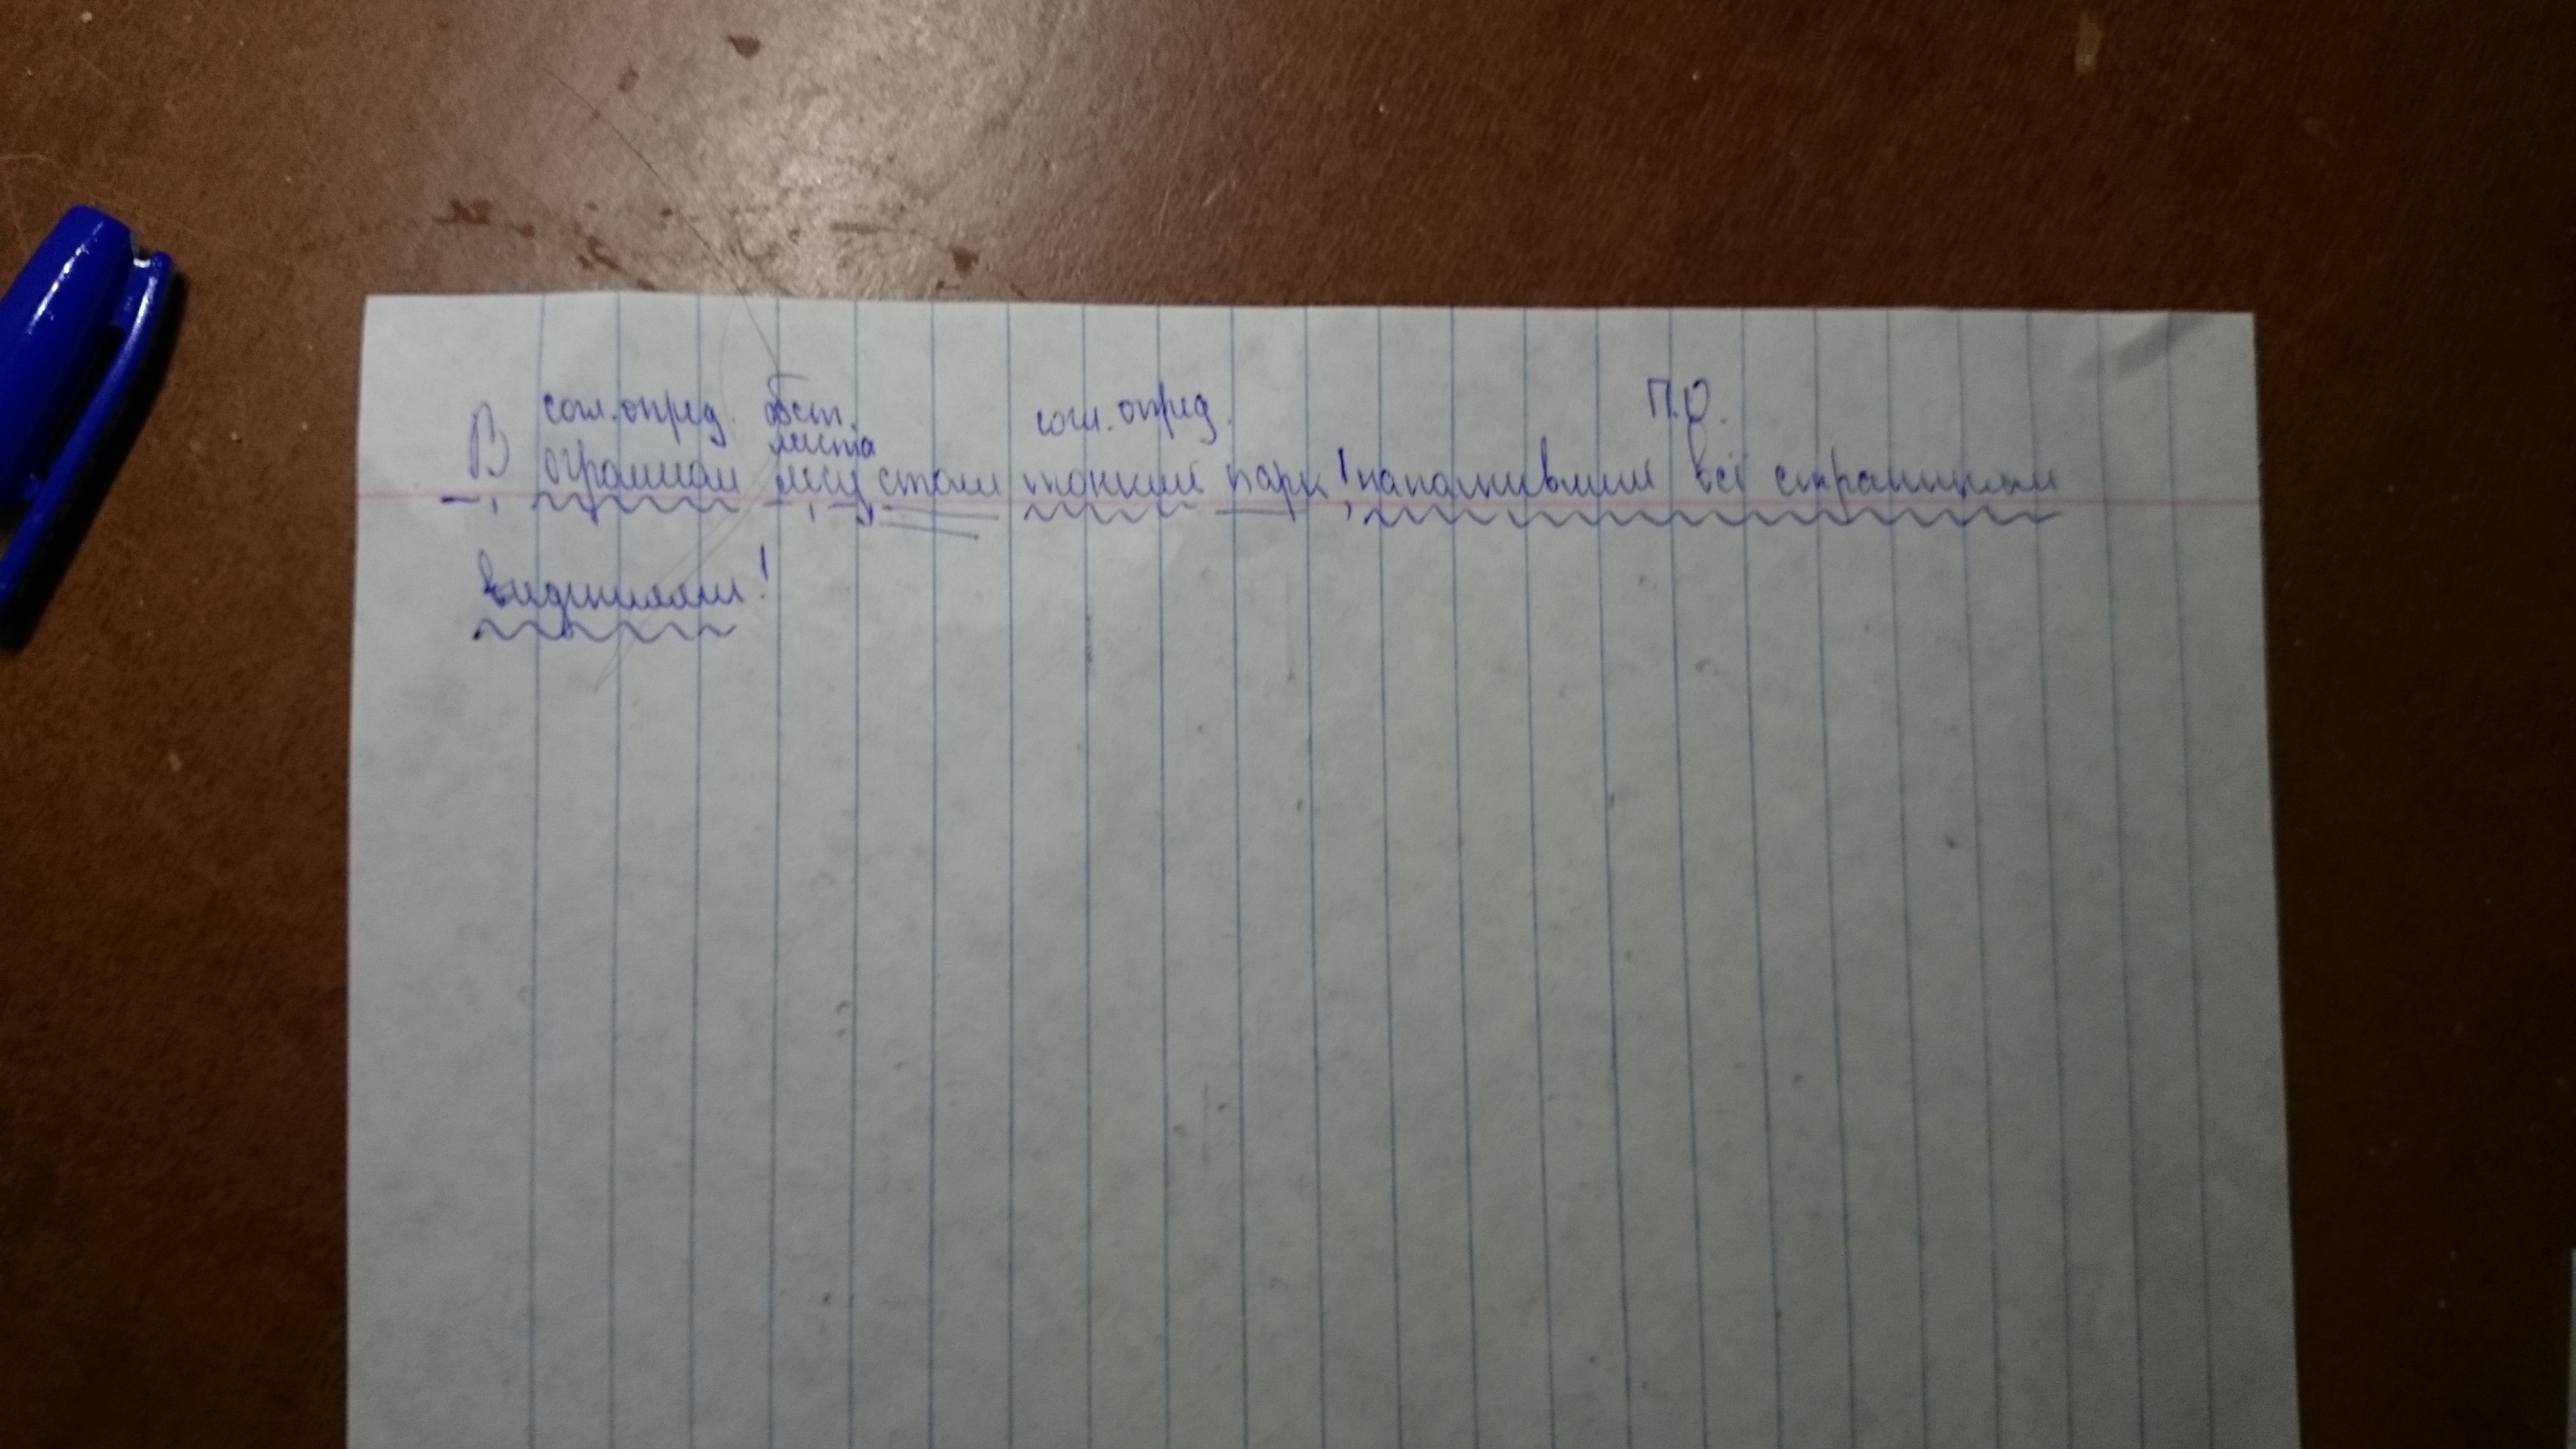 согл. опред. обст. места согл. опред. П.О.
В огромном лесу стоял тонкий парк, наполнивший всё странными
видениями!